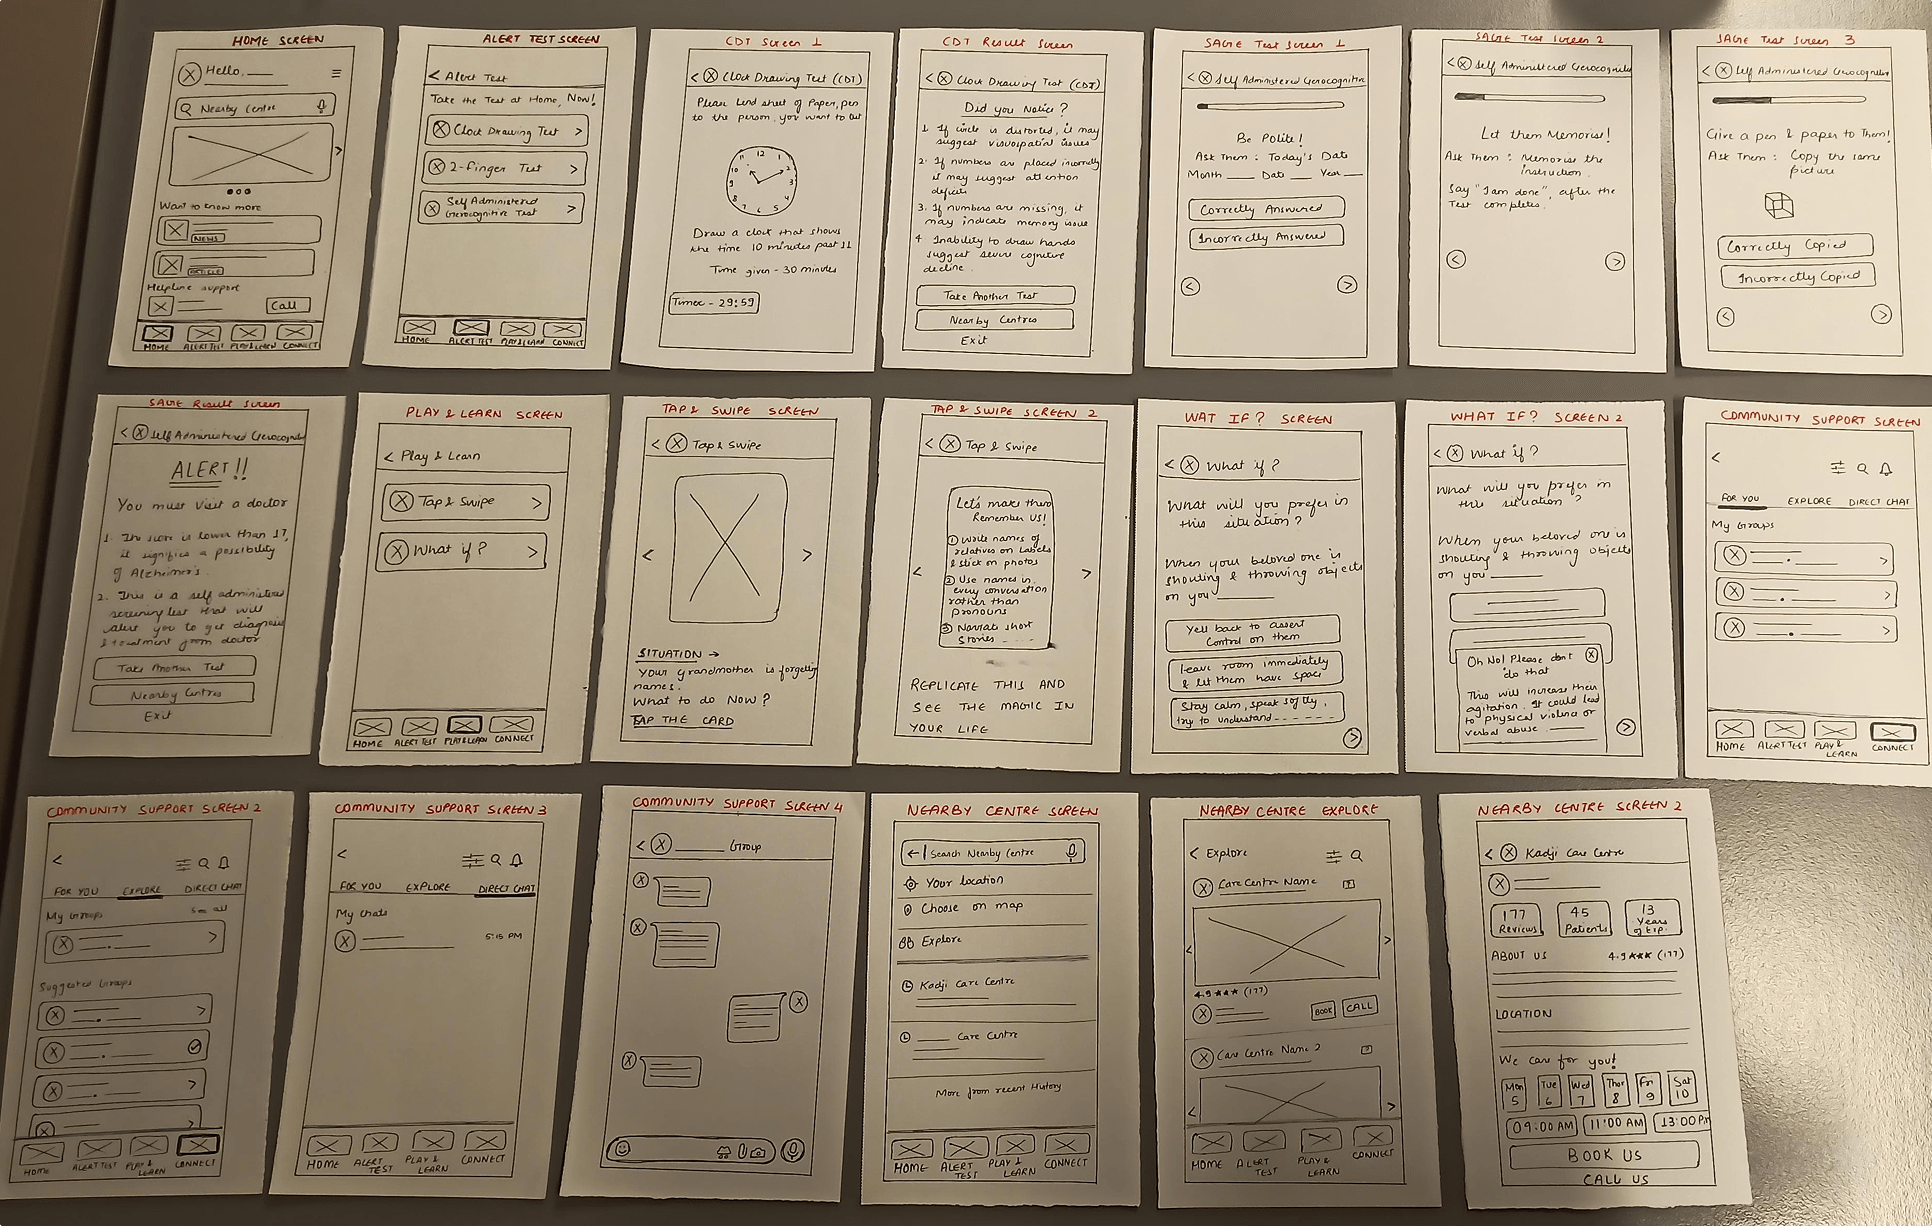 HOME SCREEN
Hello, ___
Nearby Centre
Want to know more
NEWS
ARTICLE
Helpline support
Call
HOME ALERT TEST PLAY & LEARN CONNECT
ALERT TEST SCREEN
< Alert Test
Take the Test at Home, Now!
Clock Drawing Test >
2-Finger Test >
Self Administered
Gerocognitive Test >
HOME ALERT TEST PLAY & LEARN CONNECT
CDT Screen 1
< Clock Drawing Test (CDT)
Please Lend sheet of Paper, pen
to the person, you want to
12
1
2
3
4
5
6
7
8
9
10
11
Draw a clock that shows
the time 10 minutes past 11
Time given - 30 minutes
Timer - 29:59
CDT Result Screen
< Clock Drawing Test (CDT)
Did you Notice?
1. If circle is distorted, it may
suggest visuospatial issues
2. If numbers are placed incorrectly
it may suggest attention
deficits
3. If numbers are missing, it
may indicate memory issue
4. Inability to draw hands
suggest severe cognitive
decline.
Take Another Test
Nearby Centres
Exit
SAGE Test Screen 1
< Self Administered Gerocognitive
Be Polite!
Ask Them : Today's Date
Month ___ Date ___ Year ___
Correctly Answered
Incorrectly Answered
< >
SAGE Test Screen 2
< Self Administered Gerocognitiv
Let them Memorise!
Ask Them : Memorise the
Instruction.
Say "I am done", after the
Test completes.
< >
SAGE Test Screen 3
< Self Administered Gerocognitiv
Give a pen & paper to Them!
Ask Them : Copy the same
picture
Correctly Copied
Incorrectly Copied
< >
SAGE Result Screen
< Self Administered Gerocogniti
ALERT!!
You must visit a doctor
1. The score is lower than 17,
it signifies a possibility
of Alzheimer's.
2. This is a self administered
screening test that will
alert you to get diagnosis
& treatment from doctor
Take Another Test
Nearby Centres
Exit
PLAY & LEARN SCREEN
< Play & Learn
Tap & Swipe >
What if? >
HOME ALERT TEST PLAY & LEARN CONNECT
TAP & SWIPE SCREEN
< Tap & Swipe
< >
SITUATION →
Your grandmother is forgetting
names.
What to do Now?
TAP THE CARD
TAP & SWIPE SCREEN 2
< Tap & Swipe
Let's make them
Remember US!
1 Write names of
relatives on Labels
& stick on photos
2 Use names in
every conversation
rather than
pronouns
3 Narrate short
stories ....
< >
REPLICATE THIS AND
SEE THE MAGIC IN
YOUR LIFE
WAT IF? SCREEN
< What if?
What will you prefer in
this situation?
When your beloved one is
shouting & throwing objects
on you ______
Yell back to assert
Control on them
Leave room immediately
& let them have space
Stay calm, speak softly,
try to understand - - - - -
>
WHAT IF? SCREEN 2
< What if?
What will you prefer in
this situation?
When your beloved one is
shouting & throwing objects
on you ______
Oh No! Please don't
do that
This will increase their
agitation. It could lead
to physical violence or
verbal abuse. ____
>
COMMUNITY SUPPORT SCREEN
<
FOR YOU EXPLORE DIRECT CHAT
My Groups
>
>
>
HOME ALERT TEST PLAY & LEARN CONNECT
COMMUNITY SUPPORT SCREEN 2
<
FOR YOU EXPLORE DIRECT CHAT
My Groups See all
>
Suggested Groups
>
>
>
HOME ALERT TEST PLAY & LEARN CONNECT
COMMUNITY SUPPORT SCREEN 3
<
FOR YOU EXPLORE DIRECT CHAT
My Chats
5:15 PM
HOME ALERT TEST PLAY & LEARN CONNECT
COMMUNITY SUPPORT SCREEN 4
< ______ Group
NEARBY CENTRE SCREEN
← | Search Nearby Centre
Your location
Choose on map
Explore
Kadji Care Centre
____ Care Centre
More from recent History
HOME ALERT TEST PLAY & LEARN CONNECT
NEARBY CENTRE EXPLORE
< Explore
Care Centre Name
< >
4.9 ★★★ (177)
BOOK CALL
Care Centre Name 2
< >
HOME ALERT TEST PLAY & LEARN CONNECT
NEARBY CENTRE SCREEN 2
< Kadji Care Centre
177 Reviews
45 Patients
13 Years of Exp.
ABOUT US 4.9 ★★★ (177)
LOCATION
We care for you!
Mon 5
Tue 6
Wed 7
Thur 8
Fri 9
Sat 10
09:00 AM 11:00 AM 13:00 PM
BOOK US
CALL US